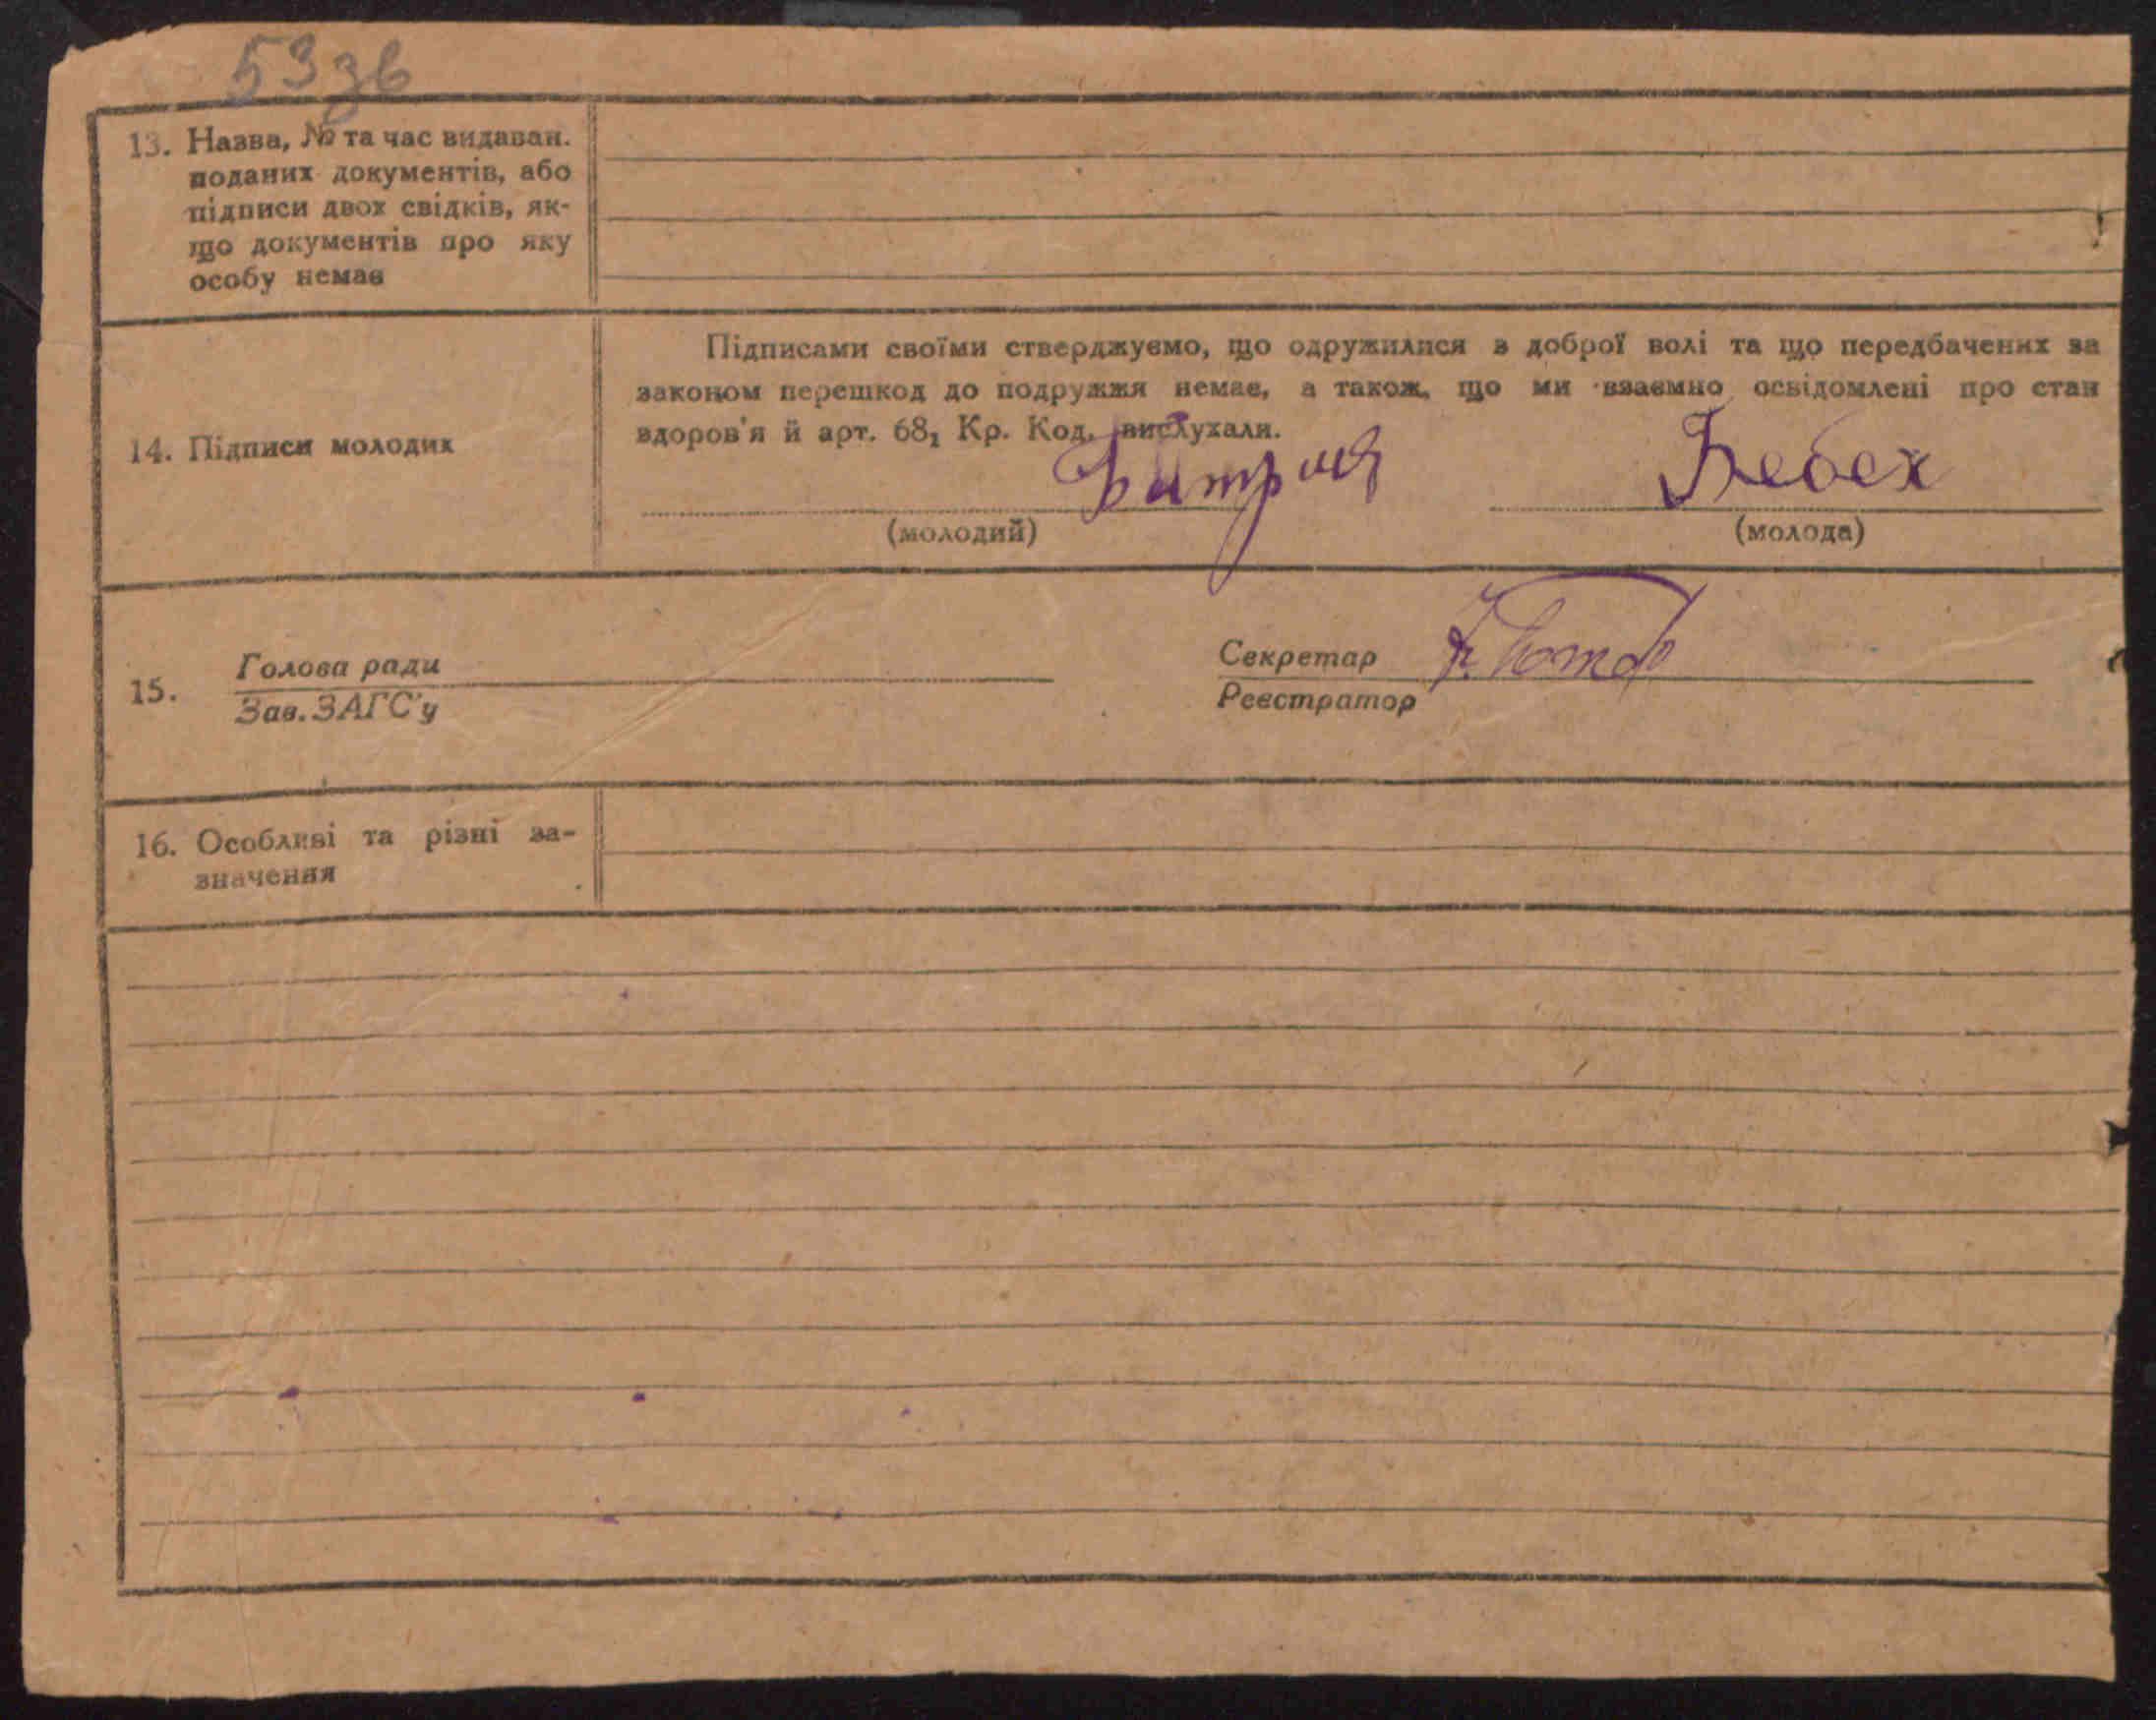 53зв
13. Назва, № та час видаван.
поданих документів, або
підписи двох свідків, як-
що документів про яку
особу немає
Підписами своїми стверджуємо, що одружилися з доброї волі та що передбачених за
законом перешкод до подружжя немає, а також, що ми взаємно освідомлені про стан
здоров'я й арт. 68₁ Кр. Код. вислухали.
14. Підписи молодих
Бебех
(молодий) (молода)
15. Голова ради
Зав. ЗАГС'у
Секретар
Реєстратор
16. Особливі та різні за-
значення